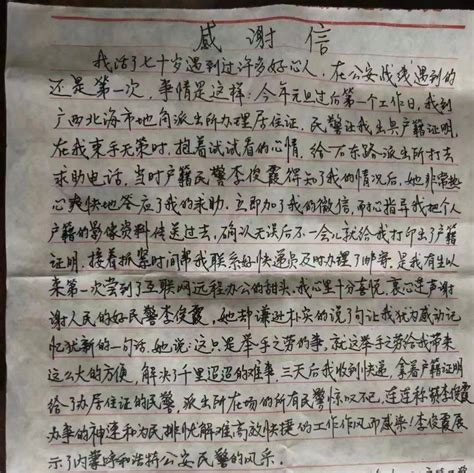 感谢信
我活了七十岁遇到过许多好心人，在公安战线遇到的
还是第一次，事情是这样：今年元旦过后第一个工作日，我到
广西北海市地角派出所办理居住证，民警让我出具户籍证明，
在我束手无策时，抱着试试看的心情，给石东路派出所打去
求助电话，当时户籍民警李俊霞得知了我的情况后，她非常热
心爽快地答应了我的求助，立即加了我的微信，耐心指导我把个人
户籍的影像资料传送过去，确认无误后不一会儿就给我打印出了户籍
证明，接着抓紧时间帮我联系好快递员及时办理了邮寄，是我有生以
来第一次尝到了互联网远程办公的甜头，我心里十分喜悦，衷心连声谢
谢人民的好民警李俊霞，她却谦逊朴实的说了句让我犹为感动记
忆犹新的一句话，她说：这只是举手之劳的事，就这举手之劳给我带来
这么大的方便，解决了千里迢迢的难事，三天后我收到快递，拿着户籍证明
给了办居住证的民警，派出所在场的所有民警惊叹不已，连连称赞李俊霞
办事的神速和为民排忧解难高效快捷的工作作风而感染！李俊霞展
示了内蒙呼和浩特公安民警的风采。